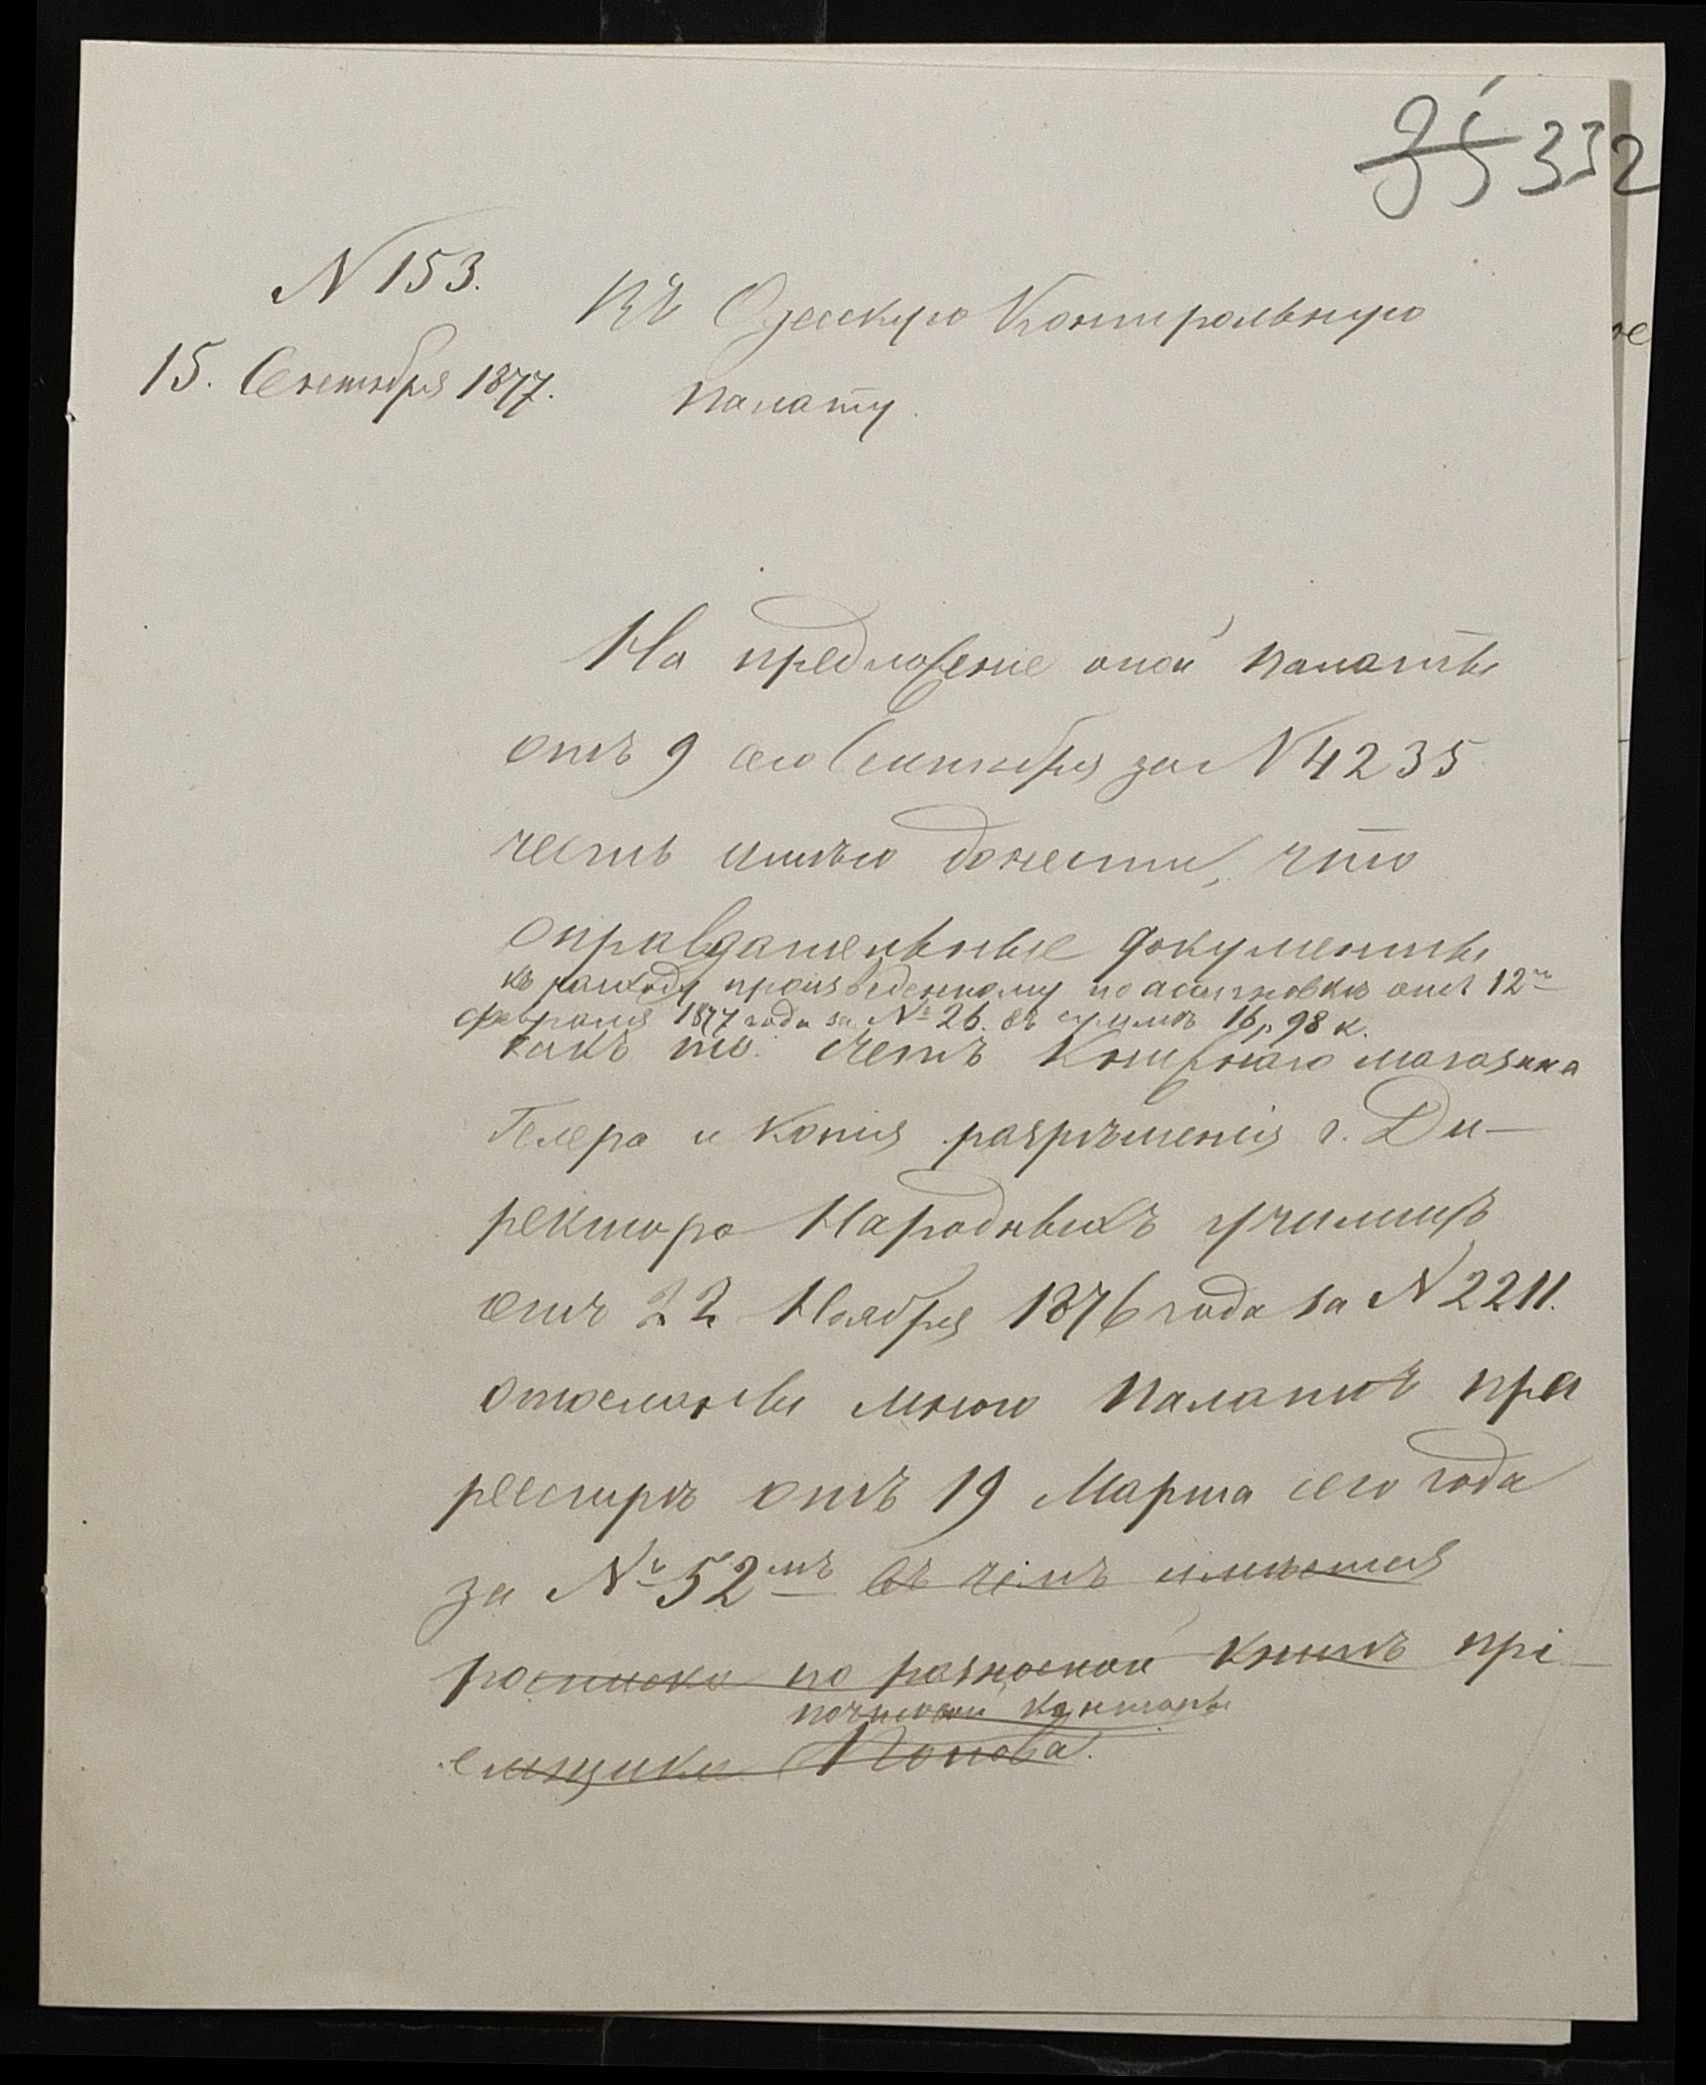 35 332
N 153.
Въ Одескую Контрольную
15. Сентября 1877.
палату.
На предложение оной палаты
отъ 9 сего Сентября за N 4235
честь имѣю донести, что
оправдательные документы
къ расходу произведенному по асигновкѣ отъ 12го
февраля 1877 года за № 26. въ суммѣ 16 р 98 к.
какъ то: счетъ Книжнаго магазина
Гелера и копия разрѣшенія г. Ди-
ректора Народныхъ училищъ
отъ 22 Ноября 1876 года за N 2211.
отосланы мною палатѣ при
реестрѣ отъ 19 Марта сего года
за № 52мъ въ чемъ имѣется
росписка по разносной книгѣ прі-
почтовой конторы
емщика Попова.